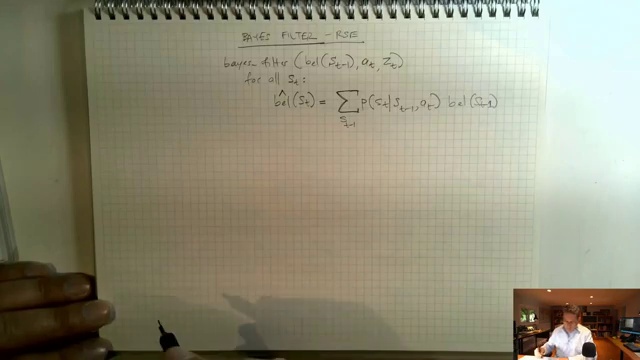 BAYES FILTER - RSE
bayes filter (bel(S_{t-1}), a_t, Z_t)
for all S_t:
bel^(S_t) = ∑_{S_{t-1}} P(S_t | S_{t-1}, a_t) bel(S_{t-1})